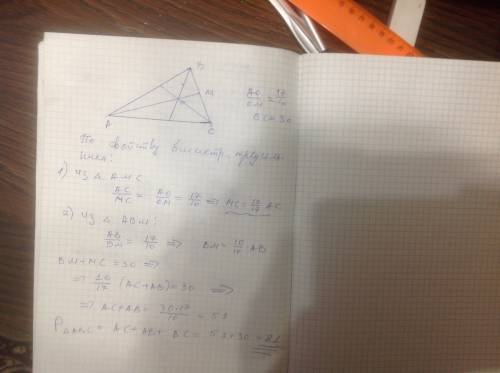 B
M
A
C
AO/OM = 17/10
BC = 30
По свойству биссектр. треуголь-
ника:
1) Из Δ AMC
AC/MC = AO/OM = 17/10 => MC = 10/17 AC
2) Из Δ ABM:
AB/BM = 17/10 => BM = 10/17 AB
BM + MC = 30 =>
=> 10/17 (AC + AB) = 30 =>
=> AC + AB = 30·17/10 = 51
P ΔABC = AC + AB + BC = 51 + 30 = 81